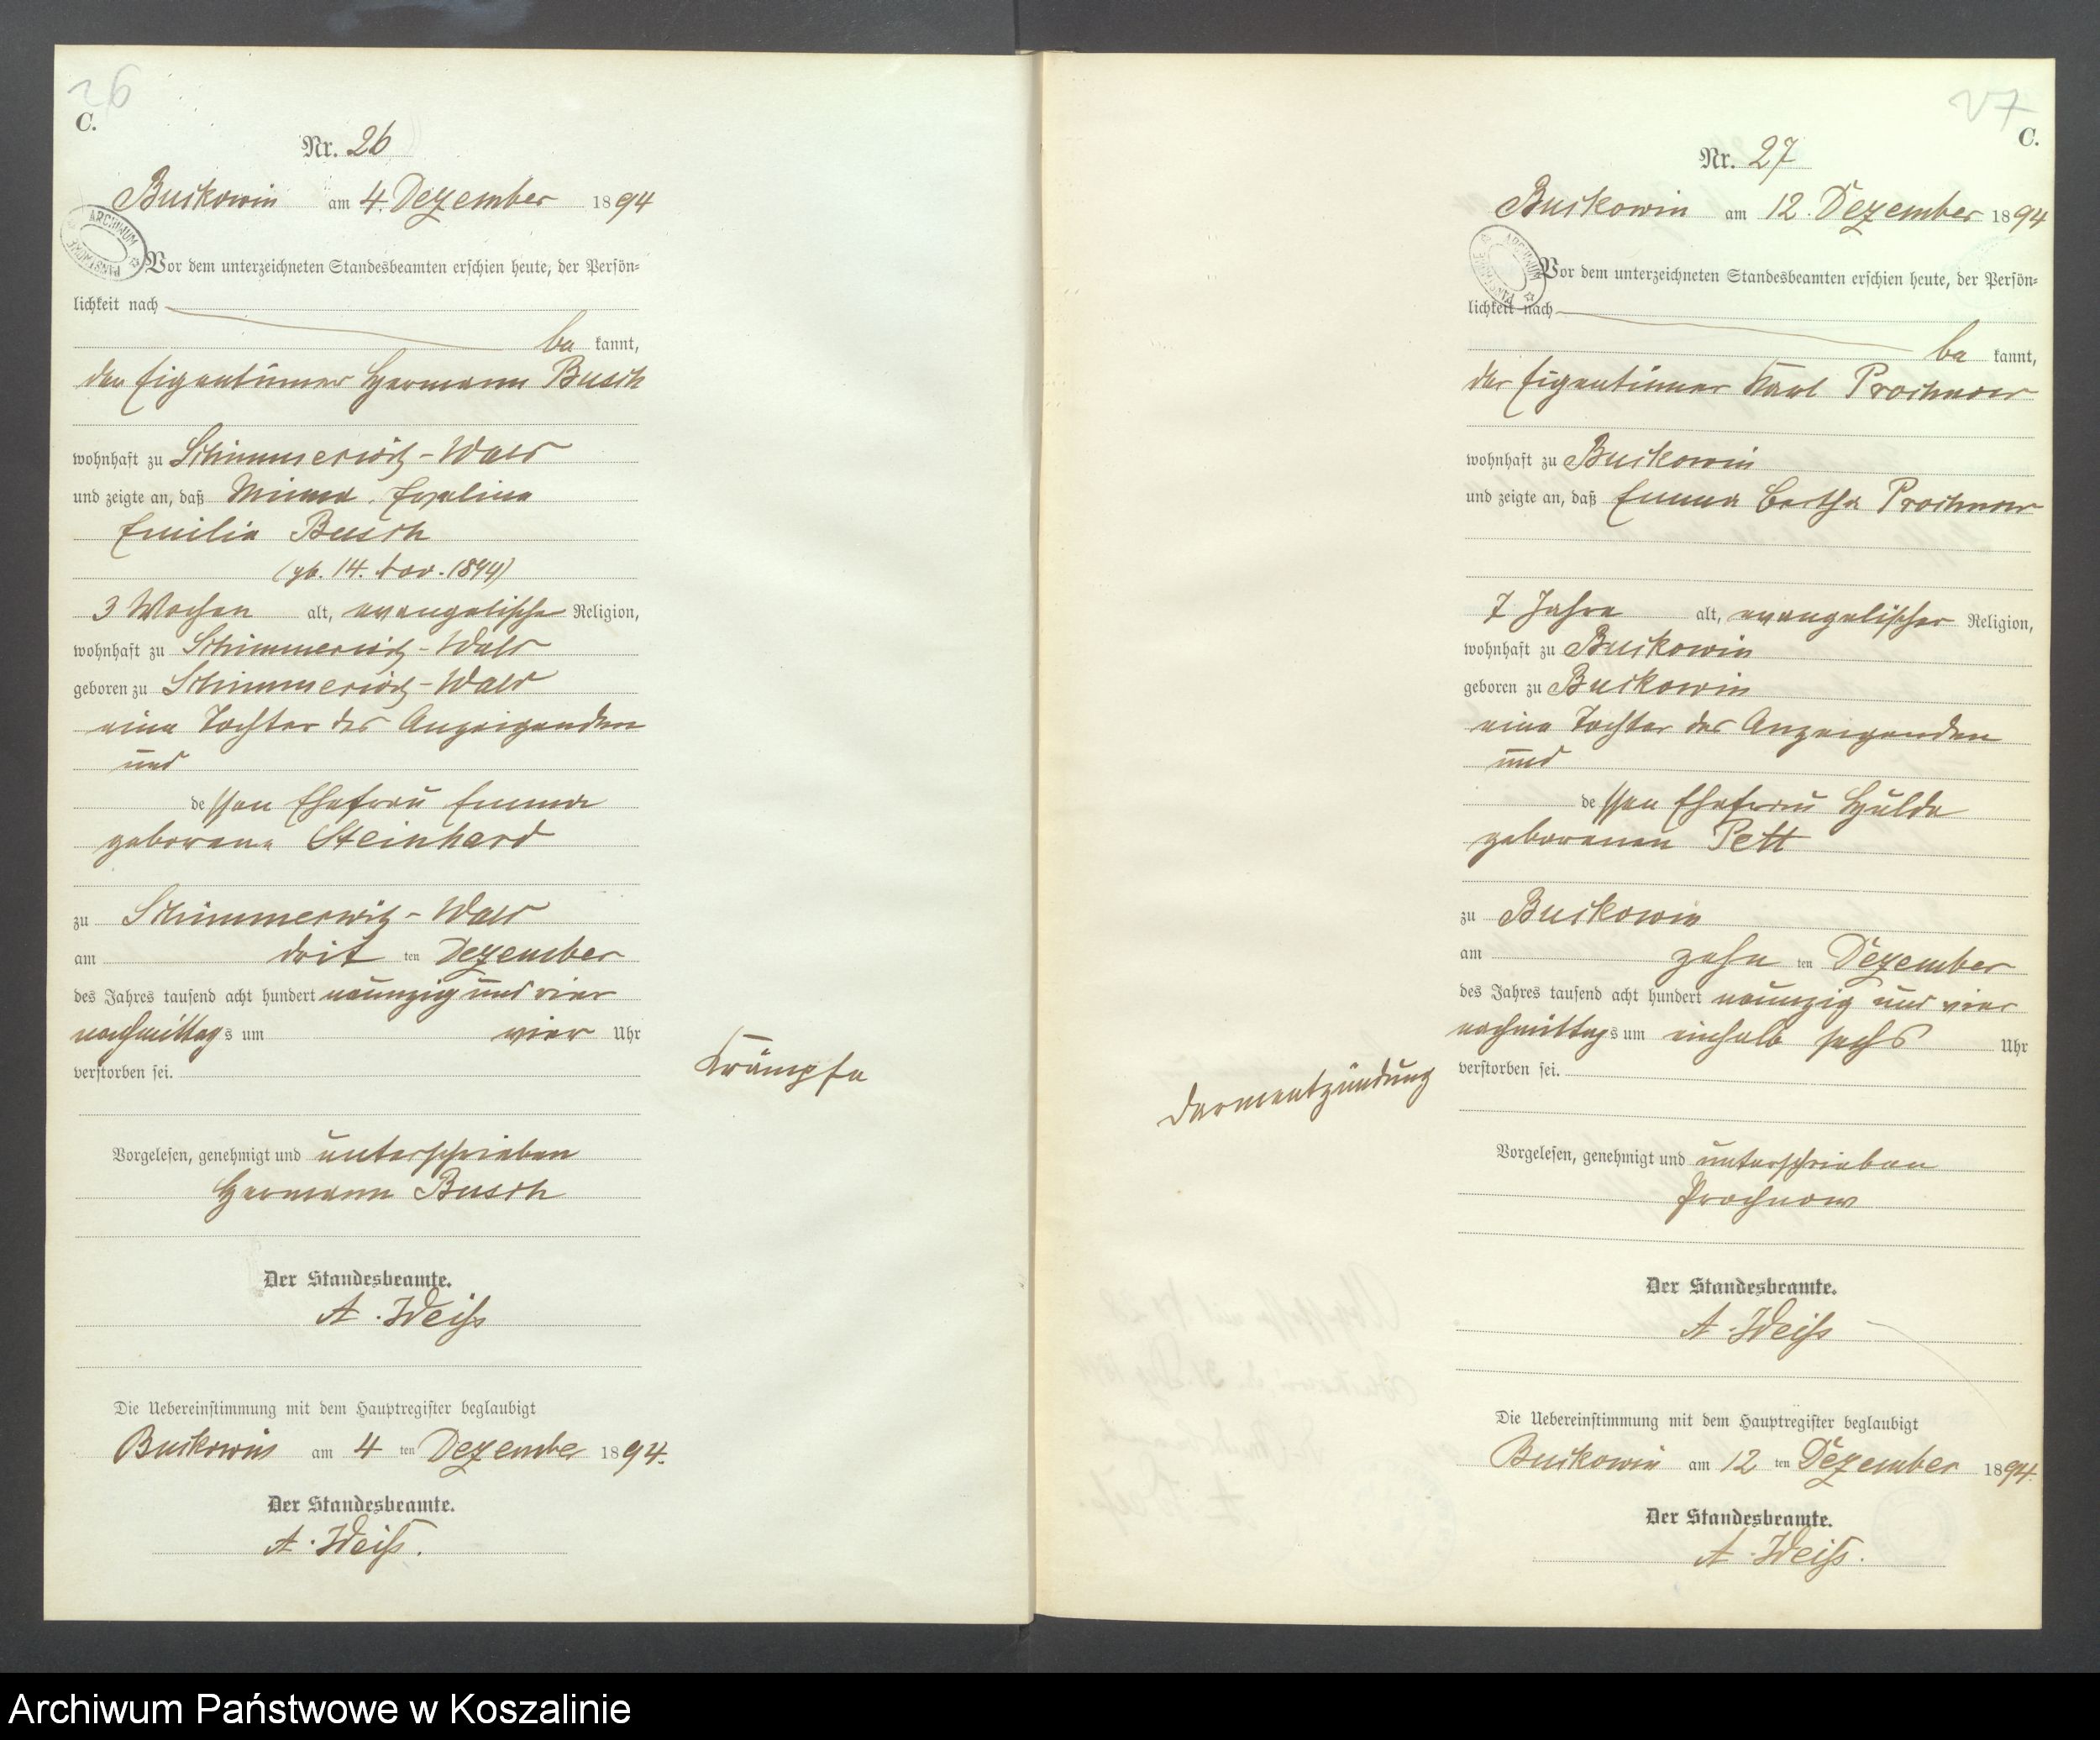 26
C.
Nr. 26
Buckowin am 4. Dezember 1894
ARCHIWUM PAŃSTWOWE
Vor dem unterzeichneten Standesbeamten erschien heute, der Persön-
lichkeit nach
be kannt,
der Eigentümer Hermann Busch
wohnhaft zu Schimmerwitz-Wald
und zeigte an, daß Minna
Emilie Busch
(gb. 14. Nov. 1894)
3 Wochen alt, evangelische Religion,
wohnhaft zu Schimmerwitz-Wald
geboren zu Schimmerwitz-Wald
eine Tochter des Anzeigenden
und
de ssen Ehefrau Emma
geborene Steinhard
zu Schimmerwitz-Wald
am drit ten Dezember
des Jahres tausend acht hundert neunzig und vier
nachmittag s um vier Uhr
verstorben sei.
Krämpfe
Vorgelesen, genehmigt und unterschrieben
Hermann Busch
Der Standesbeamte.
A. Weiß
Die Uebereinstimmung mit dem Hauptregister beglaubigt
Buckowin am 4 ten Dezember 1894.
Der Standesbeamte.
A. Weiß.
27
C.
Nr. 27
Buckowin am 12. Dezember 1894
ARCHIWUM PAŃSTWOWE
Vor dem unterzeichneten Standesbeamten erschien heute, der Persön-
lichkeit nach
be kannt,
der Eigentümer Karl Prochnow
wohnhaft zu Buckowin
und zeigte an, daß Emma Bertha Prochnow
7 Jahre alt, evangelischer Religion,
wohnhaft zu Buckowin
geboren zu Buckowin
eine Tochter des Anzeigenden
und
de ssen Ehefrau Hulda
geborenen Pett
zu Buckowin
am zehn ten Dezember
des Jahres tausend acht hundert neunzig und vier
nachmittag s um einhalb sechs Uhr
verstorben sei.
Darmentzündung
Vorgelesen, genehmigt und unterschrieben
Prochnow
Der Standesbeamte.
A. Weiß
Die Uebereinstimmung mit dem Hauptregister beglaubigt
Buckowin am 12 ten Dezember 1894.
Der Standesbeamte.
A. Weiß.
Archiwum Państwowe w Koszalinie